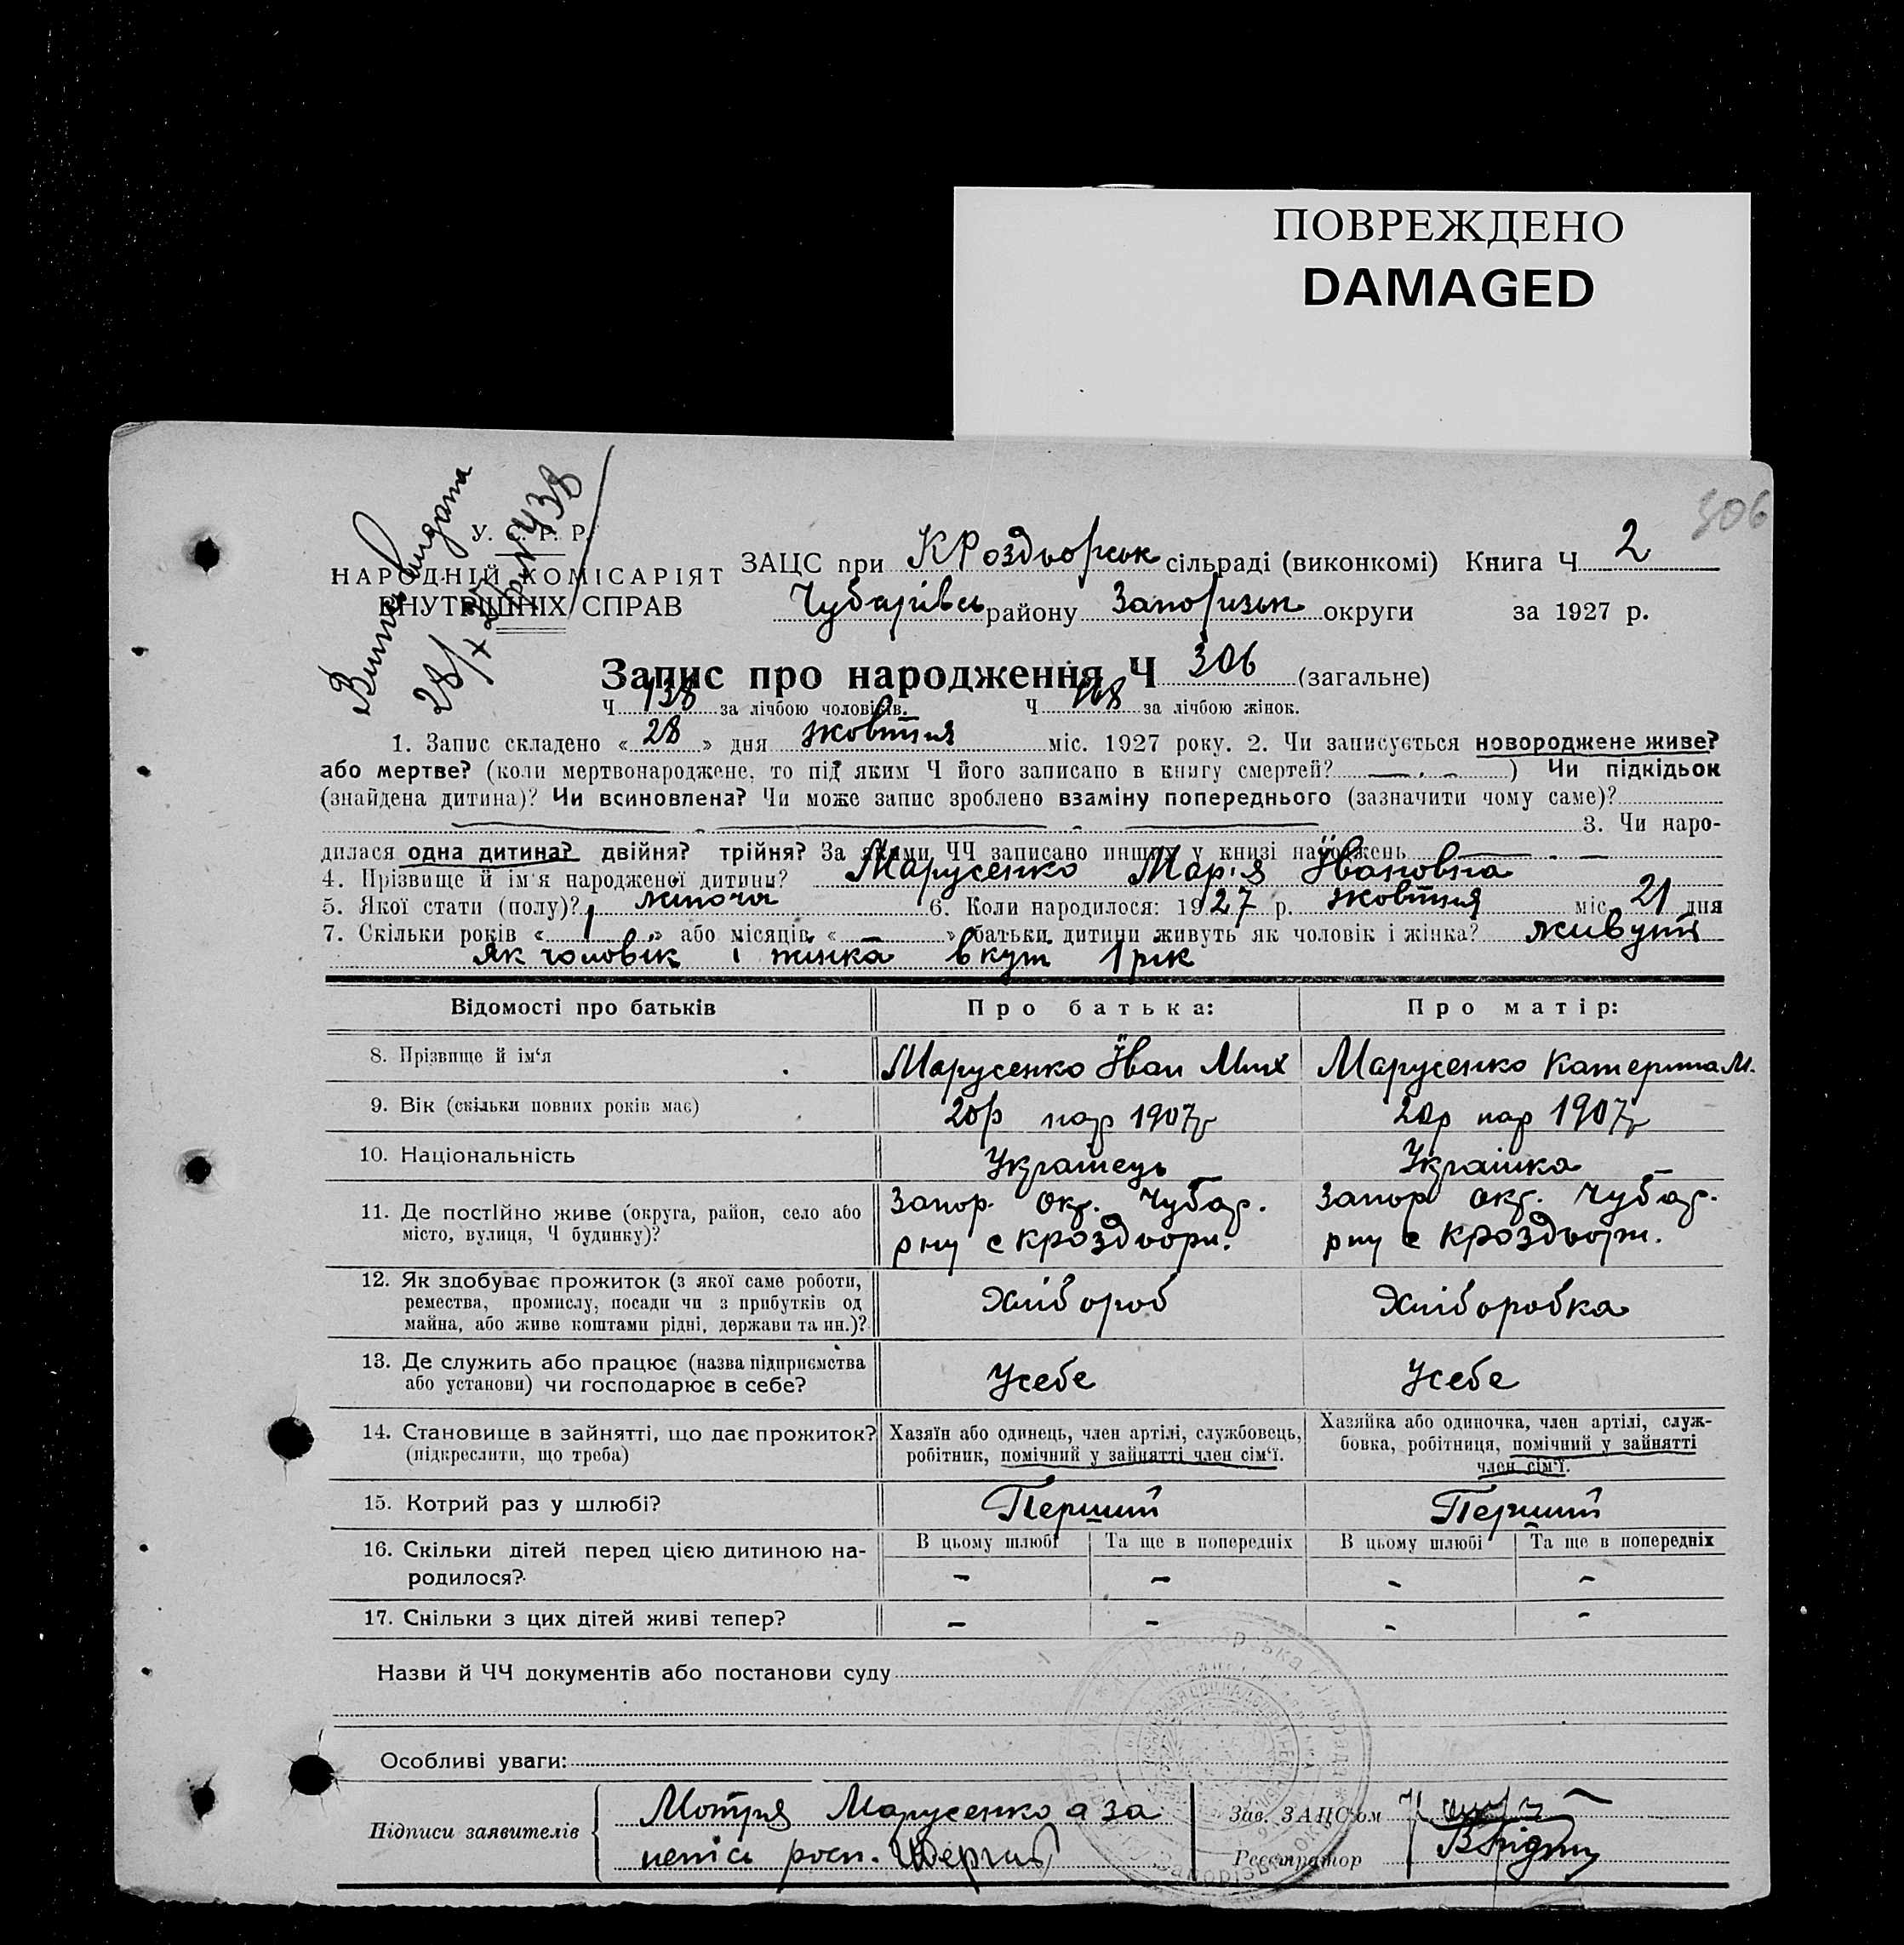 ПОВРЕЖДЕНО
DAMAGED
306
Виписъ видана
28/X 27 р № 438
У. С. Р. Р.
НАРОДНІЙ КОМІСАРІЯТ
ВНУТРІШНІХ СПРАВ
ЗАЦС при КРоздорськ сільраді (виконкомі) Книга Ч 2
Чубарівсь району Запоризьк округи за 1927 р.
Запис про народження Ч 306 (загальне)
Ч 138 за лічбою чоловіків. Ч 168 за лічбою жінок.
1. Запис складено « 28 » дня жовтня міс. 1927 року. 2. Чи записується новороджене живе?
або мертве? (коли мертвонароджене, то під яким Ч його записано в книгу смертей? — ) Чи підкідьок
(знайдена дитина)? Чи всиновлена? Чи може запис зроблено взаміну попереднього (зазначити чому саме)?
3. Чи наро-
дилася одна дитина? двійня? трійня? За якими ЧЧ записано инших у книзі народжень —
4. Прізвище й ім'я народженої дитини? Марусенко Марія Івановна
5. Якої стати (полу)? жіноча 6. Коли народилося: 1927 р. жовтня міс. 21 дня
7. Скільки років « 1 » або місяців « — » батьки дитини живуть як чоловік і жінка? живуть
як чоловік і жінка вкупі 1 рік
Відомості про батьків Про батька: Про матір:
8. Прізвище й ім'я Марусенко Іван Мих Марусенко Катерина М.
9. Вік (скільки повних років має) 20р нар 1907р 20р нар 1907р
10. Національність Українець Українка
11. Де постійно живе (округа, район, село або Запор. окр. Чубар. Запор окр. Чубар.
місто, вулиця, Ч будинку)? рну с Кроздори. рну с Кроздори.
12. Як здобуває прожиток (з якої саме роботи,
ремества, промислу, посади чи з прибутків од Хлібороб Хліборобка
майна, або живе коштами рідні, держави та ин.)?
13. Де служить або працює (назва підприємства Усебе Усебе
або установи) чи господарює в себе?
14. Становище в зайнятті, що дає прожиток? Хазяїн або одинець, член артілі, службовець, Хазяйка або одиночка, член артілі, служ-
(підкреслити, що треба) робітник, помічний у зайнятті член сім'ї. бовка, робітниця, помічний у зайнятті
член сім'ї.
15. Котрий раз у шлюбі? Перший Перший
16. Скільки дітей перед цією дитиною на- В цьому шлюбі Та ще в попередніх В цьому шлюбі Та ще в попередніх
родилося? – – – –
17. Скільки з цих дітей живі тепер? – – – –
Назви й ЧЧ документів або постанови суду
Особливі уваги:
Підписи заявителів Мотря Марусенко а за Зав. ЗАЦС'ом
непісь росп. Реєстратор